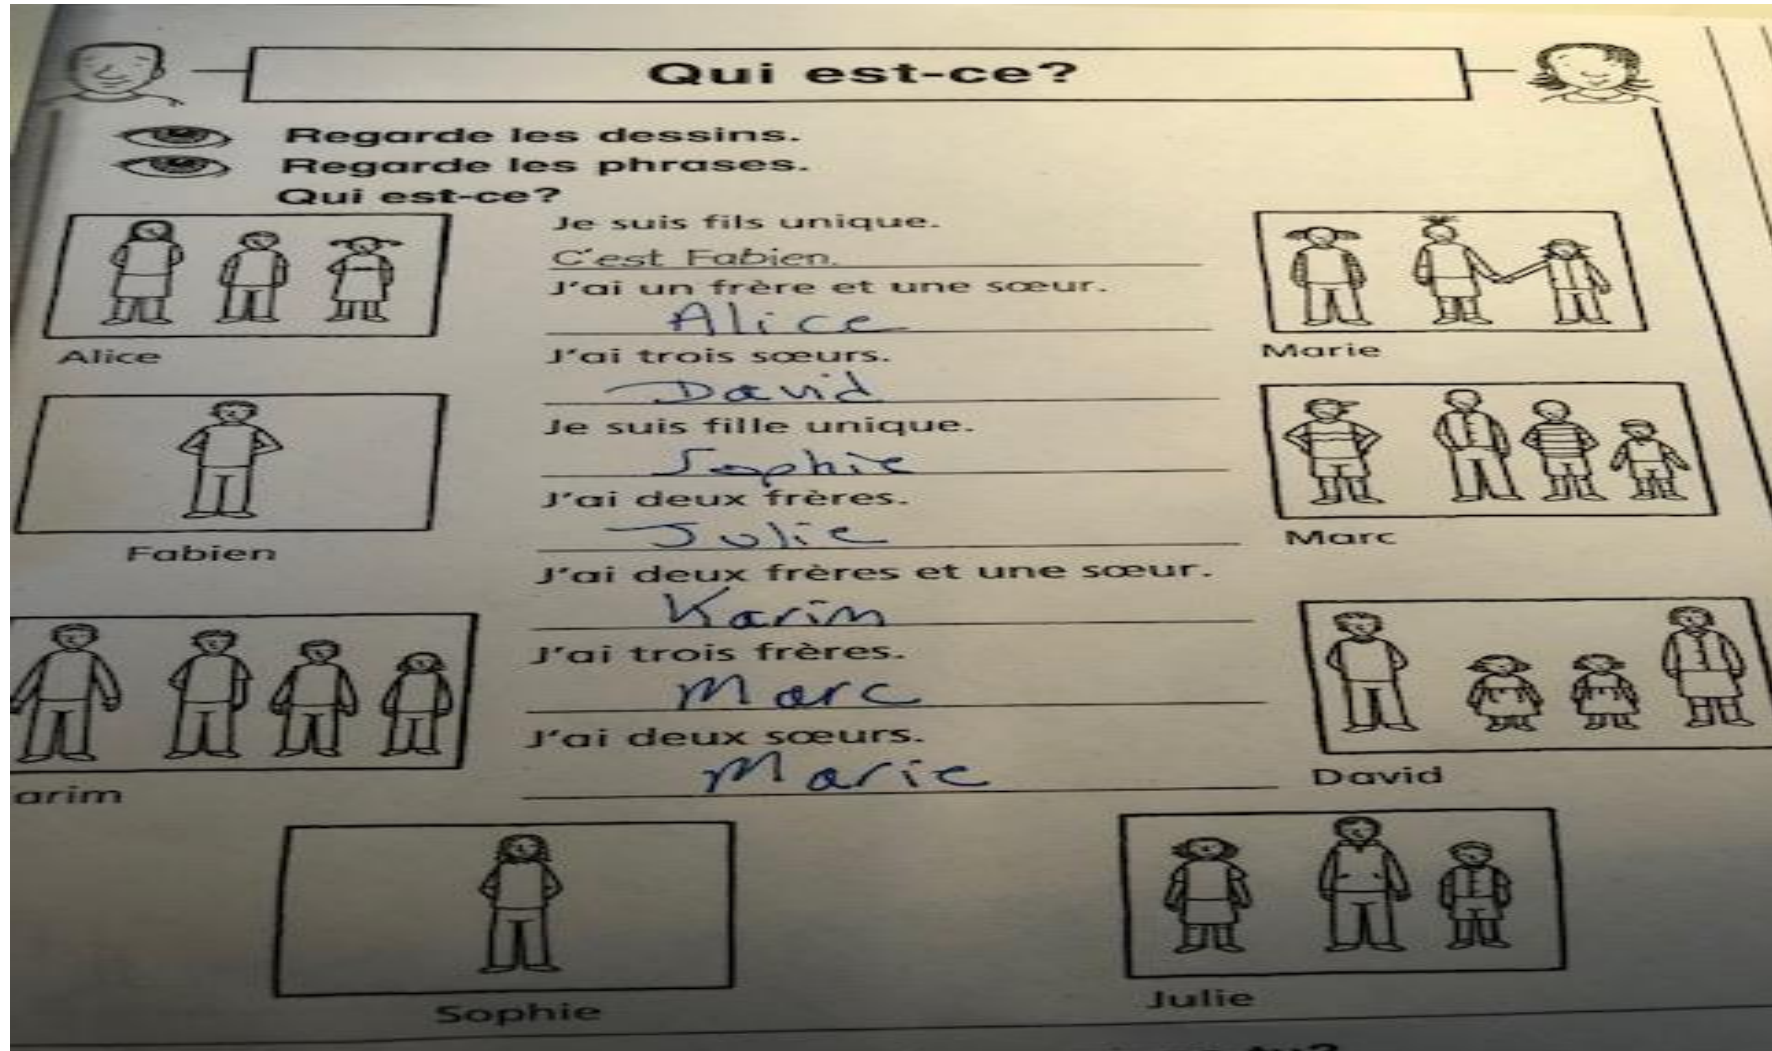 Qui est-ce?
Regarde les dessins.
Regarde les phrases.
Qui est-ce?
Je suis fils unique.
C'est Fabien.
J'ai un frère et une sœur.
Alice
Alice
Marie
J'ai trois sœurs.
David
Je suis fille unique.
Sophie
J'ai deux frères.
Julie
Fabien
Marc
J'ai deux frères et une sœur.
Karim
J'ai trois frères.
Marc
J'ai deux sœurs.
Marie
arim
David
Sophie
Julie